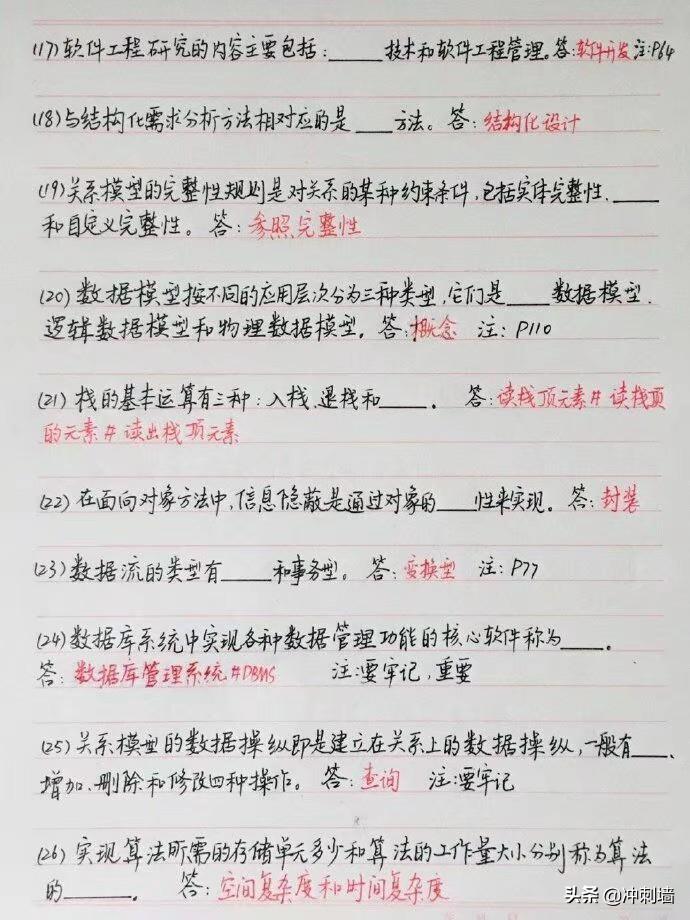 (17)软件工程研究的内容主要包括：____技术和软件工程管理。答：软件开发 注：P64
(18)与结构化需求分析方法相对应的是____方法。答：结构化设计
(19)关系模型的完整性规则是对关系的某种约束条件，包括实体完整性、____
和自定义完整性。答：参照完整性
(20)数据模型按不同的应用层次分为三种类型，它们是____数据模型、
逻辑数据模型和物理数据模型。答：概念 注：P110
(21)栈的基本运算有三种：入栈、退栈和____。答：读栈顶元素#读栈顶
的元素#读出栈顶元素
(22)在面向对象方法中，信息隐蔽是通过对象的____性来实现。答：封装
(23)数据流的类型有____和事务型。答：变换型 注：P77
(24)数据库系统中实现各种数据管理功能的核心软件称为____。
答：数据库管理系统#DBMS 注：要牢记，重要
(25)关系模型的数据操纵即是建立在关系上的数据操纵，一般有____、
增加、删除和修改四种操作。答：查询 注：要牢记
(26)实现算法所需的存储单元多少和算法的工作量大小分别称为算法
的____。答：空间复杂度和时间复杂度
头条@冲刺墙